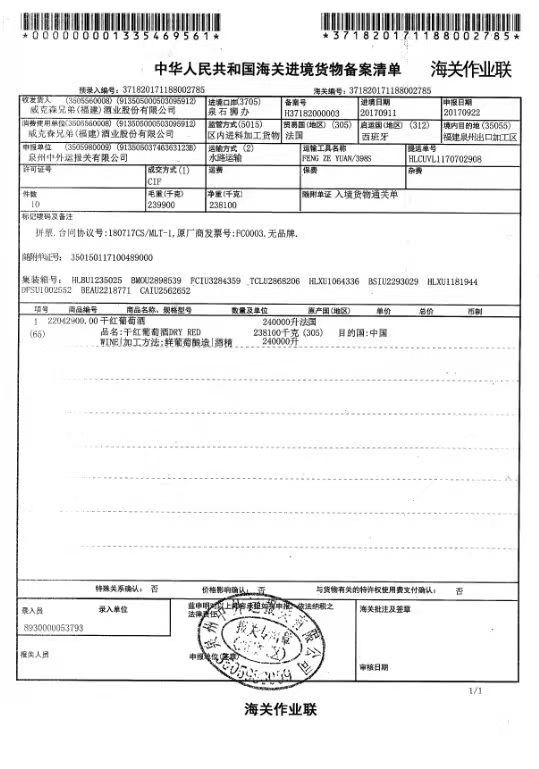 *0000000001335469561*
*371820171188002785*
中华人民共和国海关进境货物备案清单
海关作业联
预录入编号: 371820171188002785
海关编号: 371820171188002785
收发货人 (3505560008) (913505000503095912)
威克森兄弟(福建)酒业股份有限公司
进境口岸(3705)
泉石狮办
备案号
H37182000003
进境日期
20170911
申报日期
20170922
消费使用单位(3505560008) (913505000503095912)
威克森兄弟(福建)酒业股份有限公司
监管方式(5015)
区内进料加工货物
贸易国(地区) (305)
法国
启运国(地区) (312)
西班牙
境内目的地(35055)
福建泉州出口加工区
申报单位 (3505980009) (91350503746363123B)
泉州中外运报关有限公司
运输方式 (2)
水路运输
运输工具名称
FENG ZE YUAN/3985
提运单号
HLCUVL1170702908
许可证号
成交方式(1)
CIF
运费
保费
杂费
件数
10
毛重(千克)
239900
净重(千克)
238100
随附单证 入境货物通关单
标记唛码及备注
拼票.合同协议号:180717CS/MLT-1,原厂商发票号:FC0003.无品牌.
随附单证号: 350150117100489000
集装箱号: HLBU1235025 BMOU2898539 FCIU3284359 TCLU2868206 HLXU1064336 BSIU2293029 HLXU1181944
DFSU1002552 BEAU2218771 CAIU2562652
项号 商品编号 商品名称、规格型号 数量及单位 原产国(地区) 单价 总价 币制
1 22042900.00 干红葡萄酒 240000升法国
(65) 品名:干红葡萄酒DRY RED 238100千克 (305) 目的国:中国
WINE|加工方法:鲜葡萄酿造|酒精 240000升
特殊关系确认: 否 价格影响确认: 否 与货物有关的特许权使用费支付确认: 否
录入员 录入单位
8930000053793
兹申明对以上内容承担如实申报、依法纳税之
法律责任
海关批注及签章
报关人员
申报单位(签章)
审核日期
泉州中外运报关有限公司
报关专用章
1/1
海关作业联